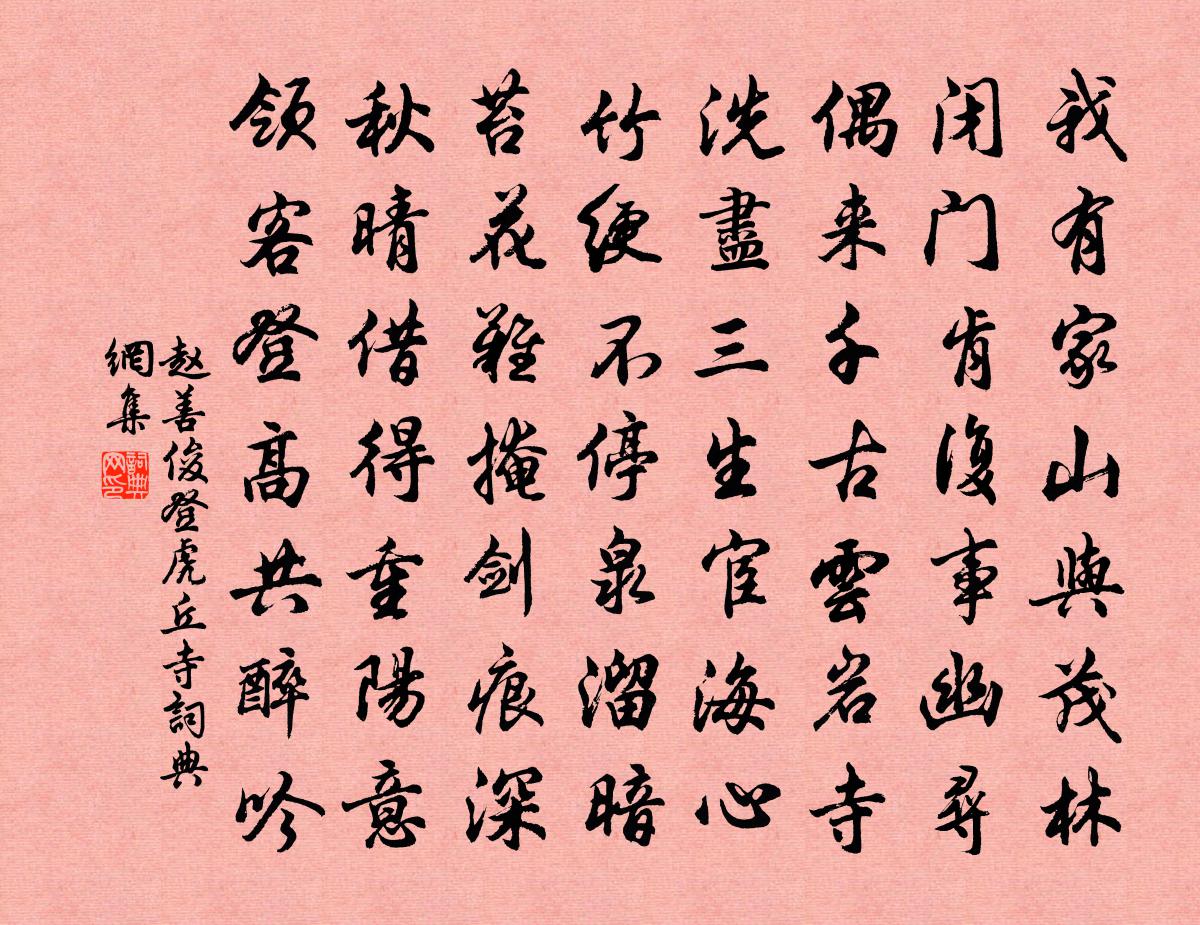 我有家山與茂林
闭门肯復事幽尋
偶来千古雲岩寺
洗盡三生宦海心
竹径不停泉溜暗
苔花難掩剑痕深
秋晴借得重陽意
领客登高共醉吟
赵善俊登虎丘寺詞典
網集
詞典
网印